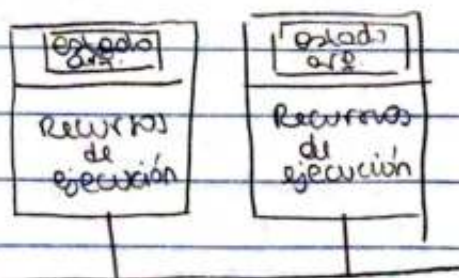 estado
arq.
Recursos
de
ejecución
estado
arq.
Recursos
de
ejecución